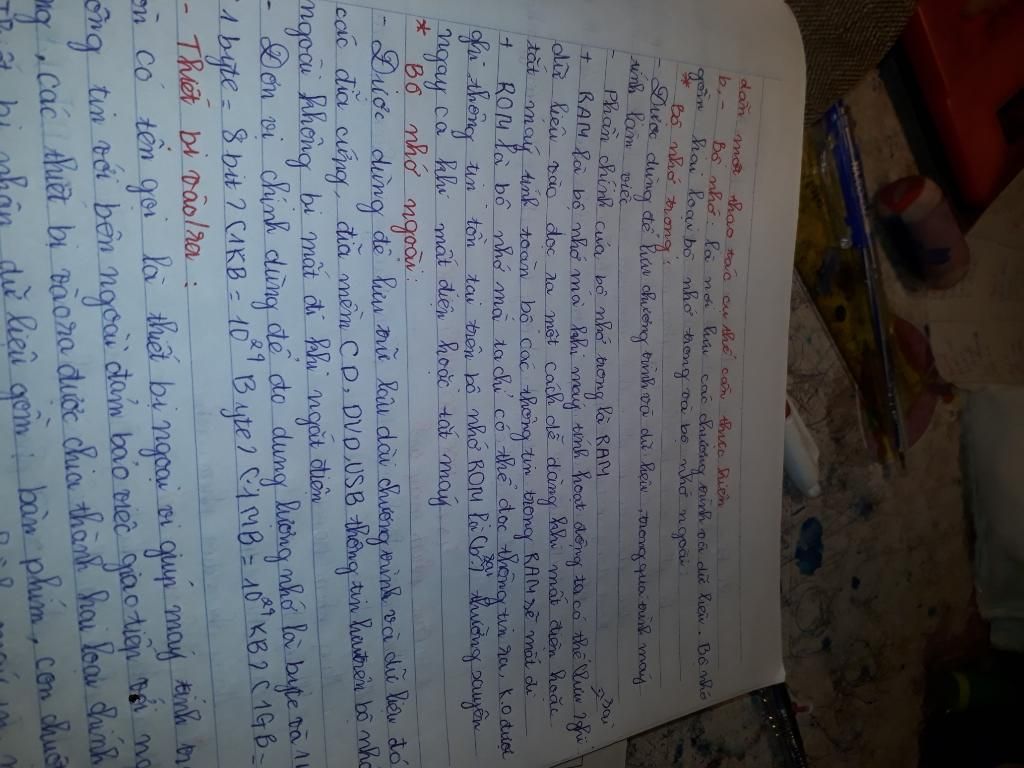 dẫn mới thao tác cụ thể cần thực hiện
b, - Bộ nhớ: là nơi lưu các chương trình và dữ liệu. Bộ nhớ
gồm hai loại bộ nhớ trong và bộ nhớ ngoài:
* Bộ nhớ trong:
- Được dùng để lưu chương trình và dữ liệu, trong quá trình máy
tính làm việc
- Phần chính của bộ nhớ trong là RAM
+ RAM là bộ nhớ mà khi máy tính hoạt động ta có thể lưu ghi
dữ liệu vào đọc ra một cách dễ dàng khi mất điện hoặc
tắt máy tính toàn bộ các thông tin trong RAM sẽ mất đi
+ ROM là bộ nhớ mà ta chỉ có thể đọc thông tin ra, K.o được
ghi thông tin tồn tại trên bộ nhớ ROM là thường xuyên
ngay cả khi mất điện hoặc tắt máy
* Bộ nhớ ngoài:
- Được dùng để lưu trữ lâu dài chương trình và dữ liệu đó
các đĩa cứng, đĩa mềm CD, DVD, USB thông tin lưu trên bộ nhớ
ngoài không bị mất đi khi ngắt điện
- Đơn vị chính dùng để đo dung lượng nhớ là byte và
1 byte = 8 bit? C1KB = 10²⁴ Byte? C1MB = 10²⁴ KB? C1GB =
- Thiết bị vào/ra:
còn có tên gọi là thiết bị ngoại vi giúp máy tính
thông tin với bên ngoài đảm bảo việc giao tiếp với
các thiết bị vào ra được chia thành hai loại chính
thiết bị nhập dữ liệu gồm: bàn phím, con chuột